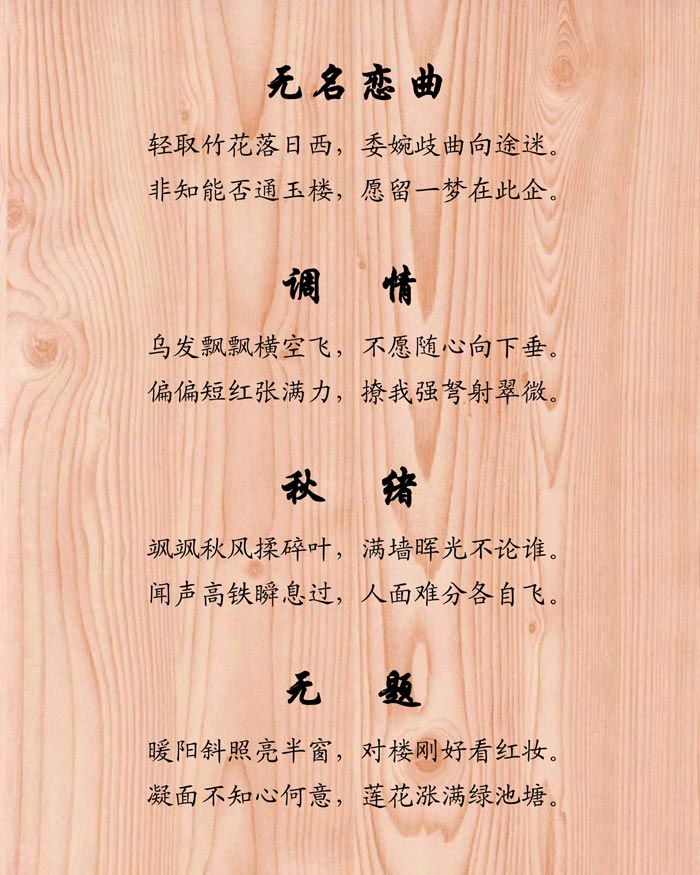 无名恋曲
轻取竹花落日西，委婉歧曲向途迷。
非知能否通玉楼，愿留一梦在此企。
调情
乌发飘飘横空飞，不愿随心向下垂。
偏偏短红张满力，撩我强弩射翠微。
秋绪
飒飒秋风揉碎叶，满墙晖光不论谁。
闻声高铁瞬息过，人面难分各自飞。
无题
暖阳斜照亮半窗，对楼刚好看红妆。
凝面不知心何意，莲花涨满绿池塘。